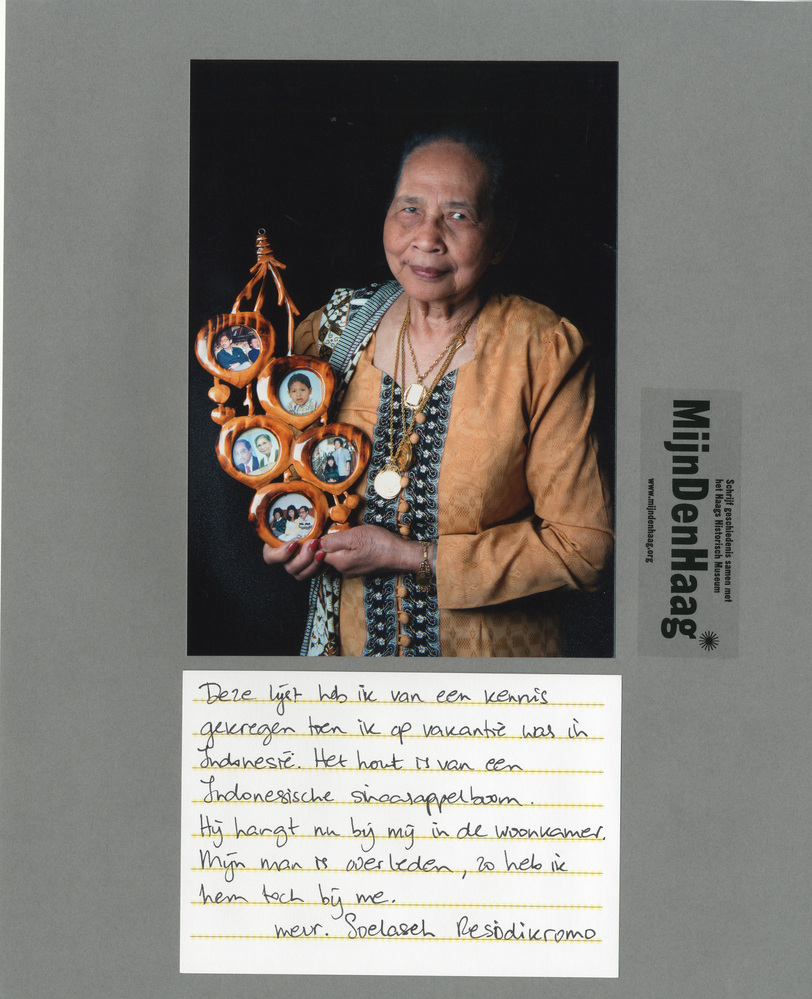 MijnDenHaag
Schrijf geschiedenis samen met
het Haags Historisch Museum
www.mijndenhaag.org
Deze lijst heb ik van een kennis
gekregen toen ik op vakantie was in
Indonesië. Het hout is van een
Indonesische sinaasappelboom.
Hij hangt nu bij mij in de woonkamer.
Mijn man is overleden, zo heb ik
hem toch bij me.
mevr. Soelaseh Resodikromo